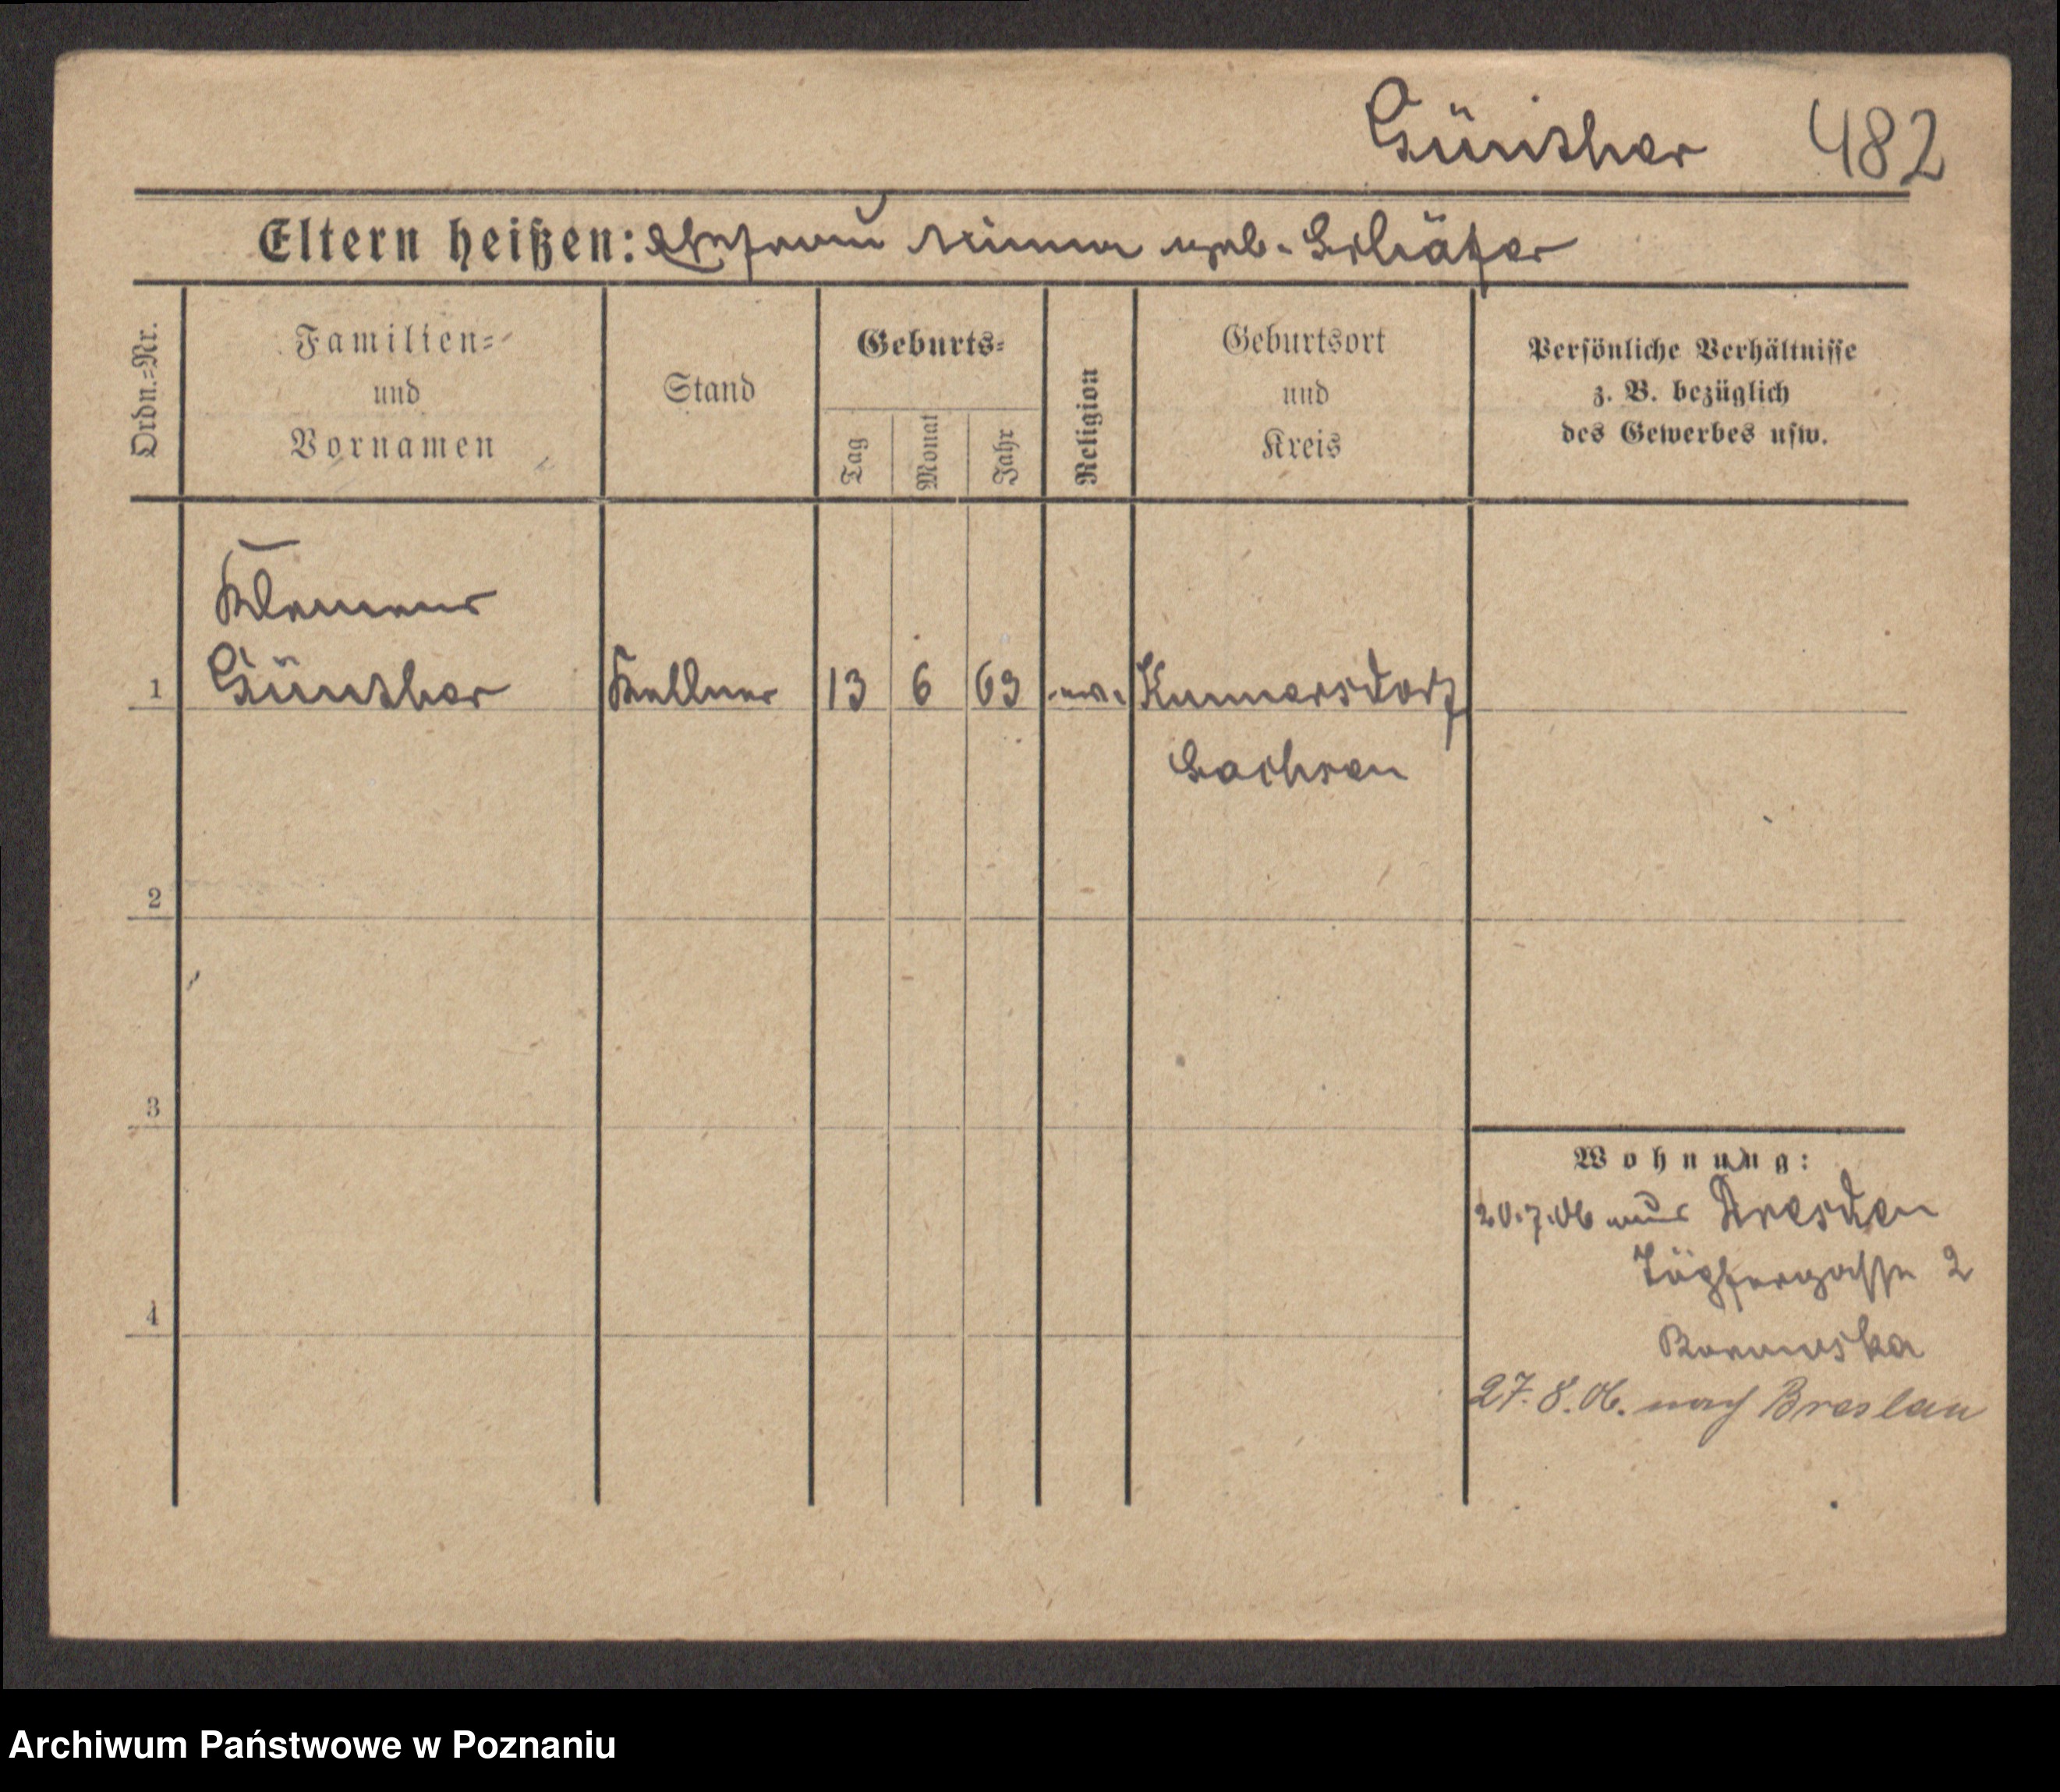 Günther 482
Eltern heißen: Ehefrau Minna geb. Schäfer
Ordn.=Nr.
Familien=
und
Vornamen
Stand
Geburts=
Tag
Monat
Jahr
Religion
Geburtsort
und
Kreis
Persönliche Verhältnisse
z. B. bezüglich
des Gewerbes usw.
Klemens
1 Günther Kellner 13 6 69 ev. Kunnersdorf
Sachsen
2
3
4
Wohnung:
20.7.06 aus Dresden
Töpfergasse 2
27.8.06. nach Breslau
Archiwum Państwowe w Poznaniu